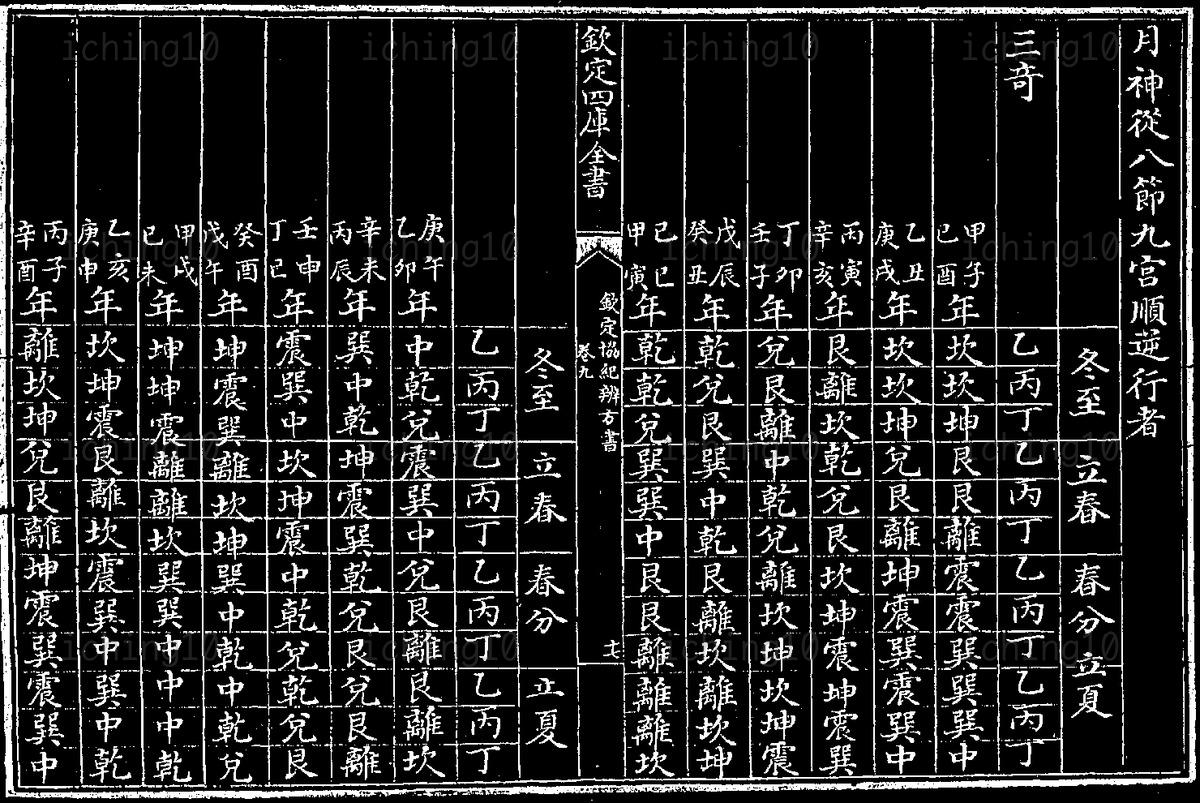 月神從八節九宮順逆行者
冬至 立春 春分 立夏
三竒 乙丙丁 乙丙丁 乙丙丁 乙丙丁
甲子己酉年 坎坎坤 艮艮離 震震巽 巽巽中
乙丑庚戌年 坎坎坤 兌艮離 坤震巽 震巽中
丙寅辛亥年 艮離坎 乾兌艮 坎坤震 坤震巽
丁卯壬子年 兌艮離 中乾兌 離坎坤 坎坤震
戊辰癸丑年 乾兌艮 巽中乾 艮離坎 離坎坤
己巳甲寅年 乾乾兌 巽巽中 艮艮離 離離坎
欽定四庫全書
欽定協紀辨方書
卷九
冬至 立春 春分 立夏
乙丙丁 乙丙丁 乙丙丁 乙丙丁
庚午乙卯年 中乾兌 震巽中 兌艮離 艮離坎
辛未丙辰年 巽中乾 坤震巽 乾兌艮 兌艮離
壬申丁巳年 震巽中 坎坤震 中乾兌 乾兌艮
癸酉戊午年 坤震巽 離坎坤 巽中乾 中乾兌
甲戌己未年 坤坤震 離離坎 巽巽中 中中乾
乙亥庚申年 坎坤震 艮離坎 震巽中 巽中乾
丙子辛酉年 離坎坤 兌艮離 坤震巽 震巽中
iching10